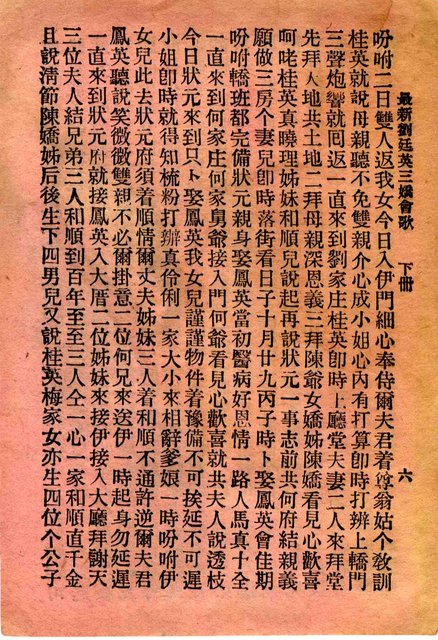 最新劉廷英三嬌會歌　下冊　六
吩咐二日雙人返我女今日入伊門細心奉侍爾夫君着尊翁姑个敎訓
桂英就說母親聽不免雙親介心成小姐心內有打算卽時打辨上轎門
三聲炮響就囘返一直來到劉家庄桂英卽時上廳堂夫妻二人來拜堂
先拜人地共土地二拜母親深恩義三拜陳爺女嬌姊陳嬌看見心歡喜
呵咾桂英真曉理姊妹和順兒說起再說狀元一事志前共何府結親義
願做三房个妻兒卽時落街看日子十月廿九丙子時卜娶鳳英會佳期
吩咐轎班都完備狀元親身娶鳳英當初醫病好恩情一路人馬真十全
一直來到何家庄何家舅爺接入門何爺看見心歡喜就共夫人說透枝
今日狀元來到只卜娶鳳英我女兒謹謹物件着豫備不可挨延不可遲
小姐卽時就得知梳粉打辦真伶俐一家大小來相辭爹娘一時吩咐伊
女兒此去狀元府須着順情爾丈夫姊妹三人着和順不通許逆爾夫君
鳳英聽說笑微微雙親不必爾掛意二位何兄來送伊一時起身勿延遲
一直來到狀元府就接鳳英入大厝二位姊妹來接伊接入大廳拜謝天
三位夫人結兄弟三人和順到百年至至三人仝一心一家和順直千金
且說淸節陳嬌姊后後生下四男兒又說桂英梅家女亦生四位个公子